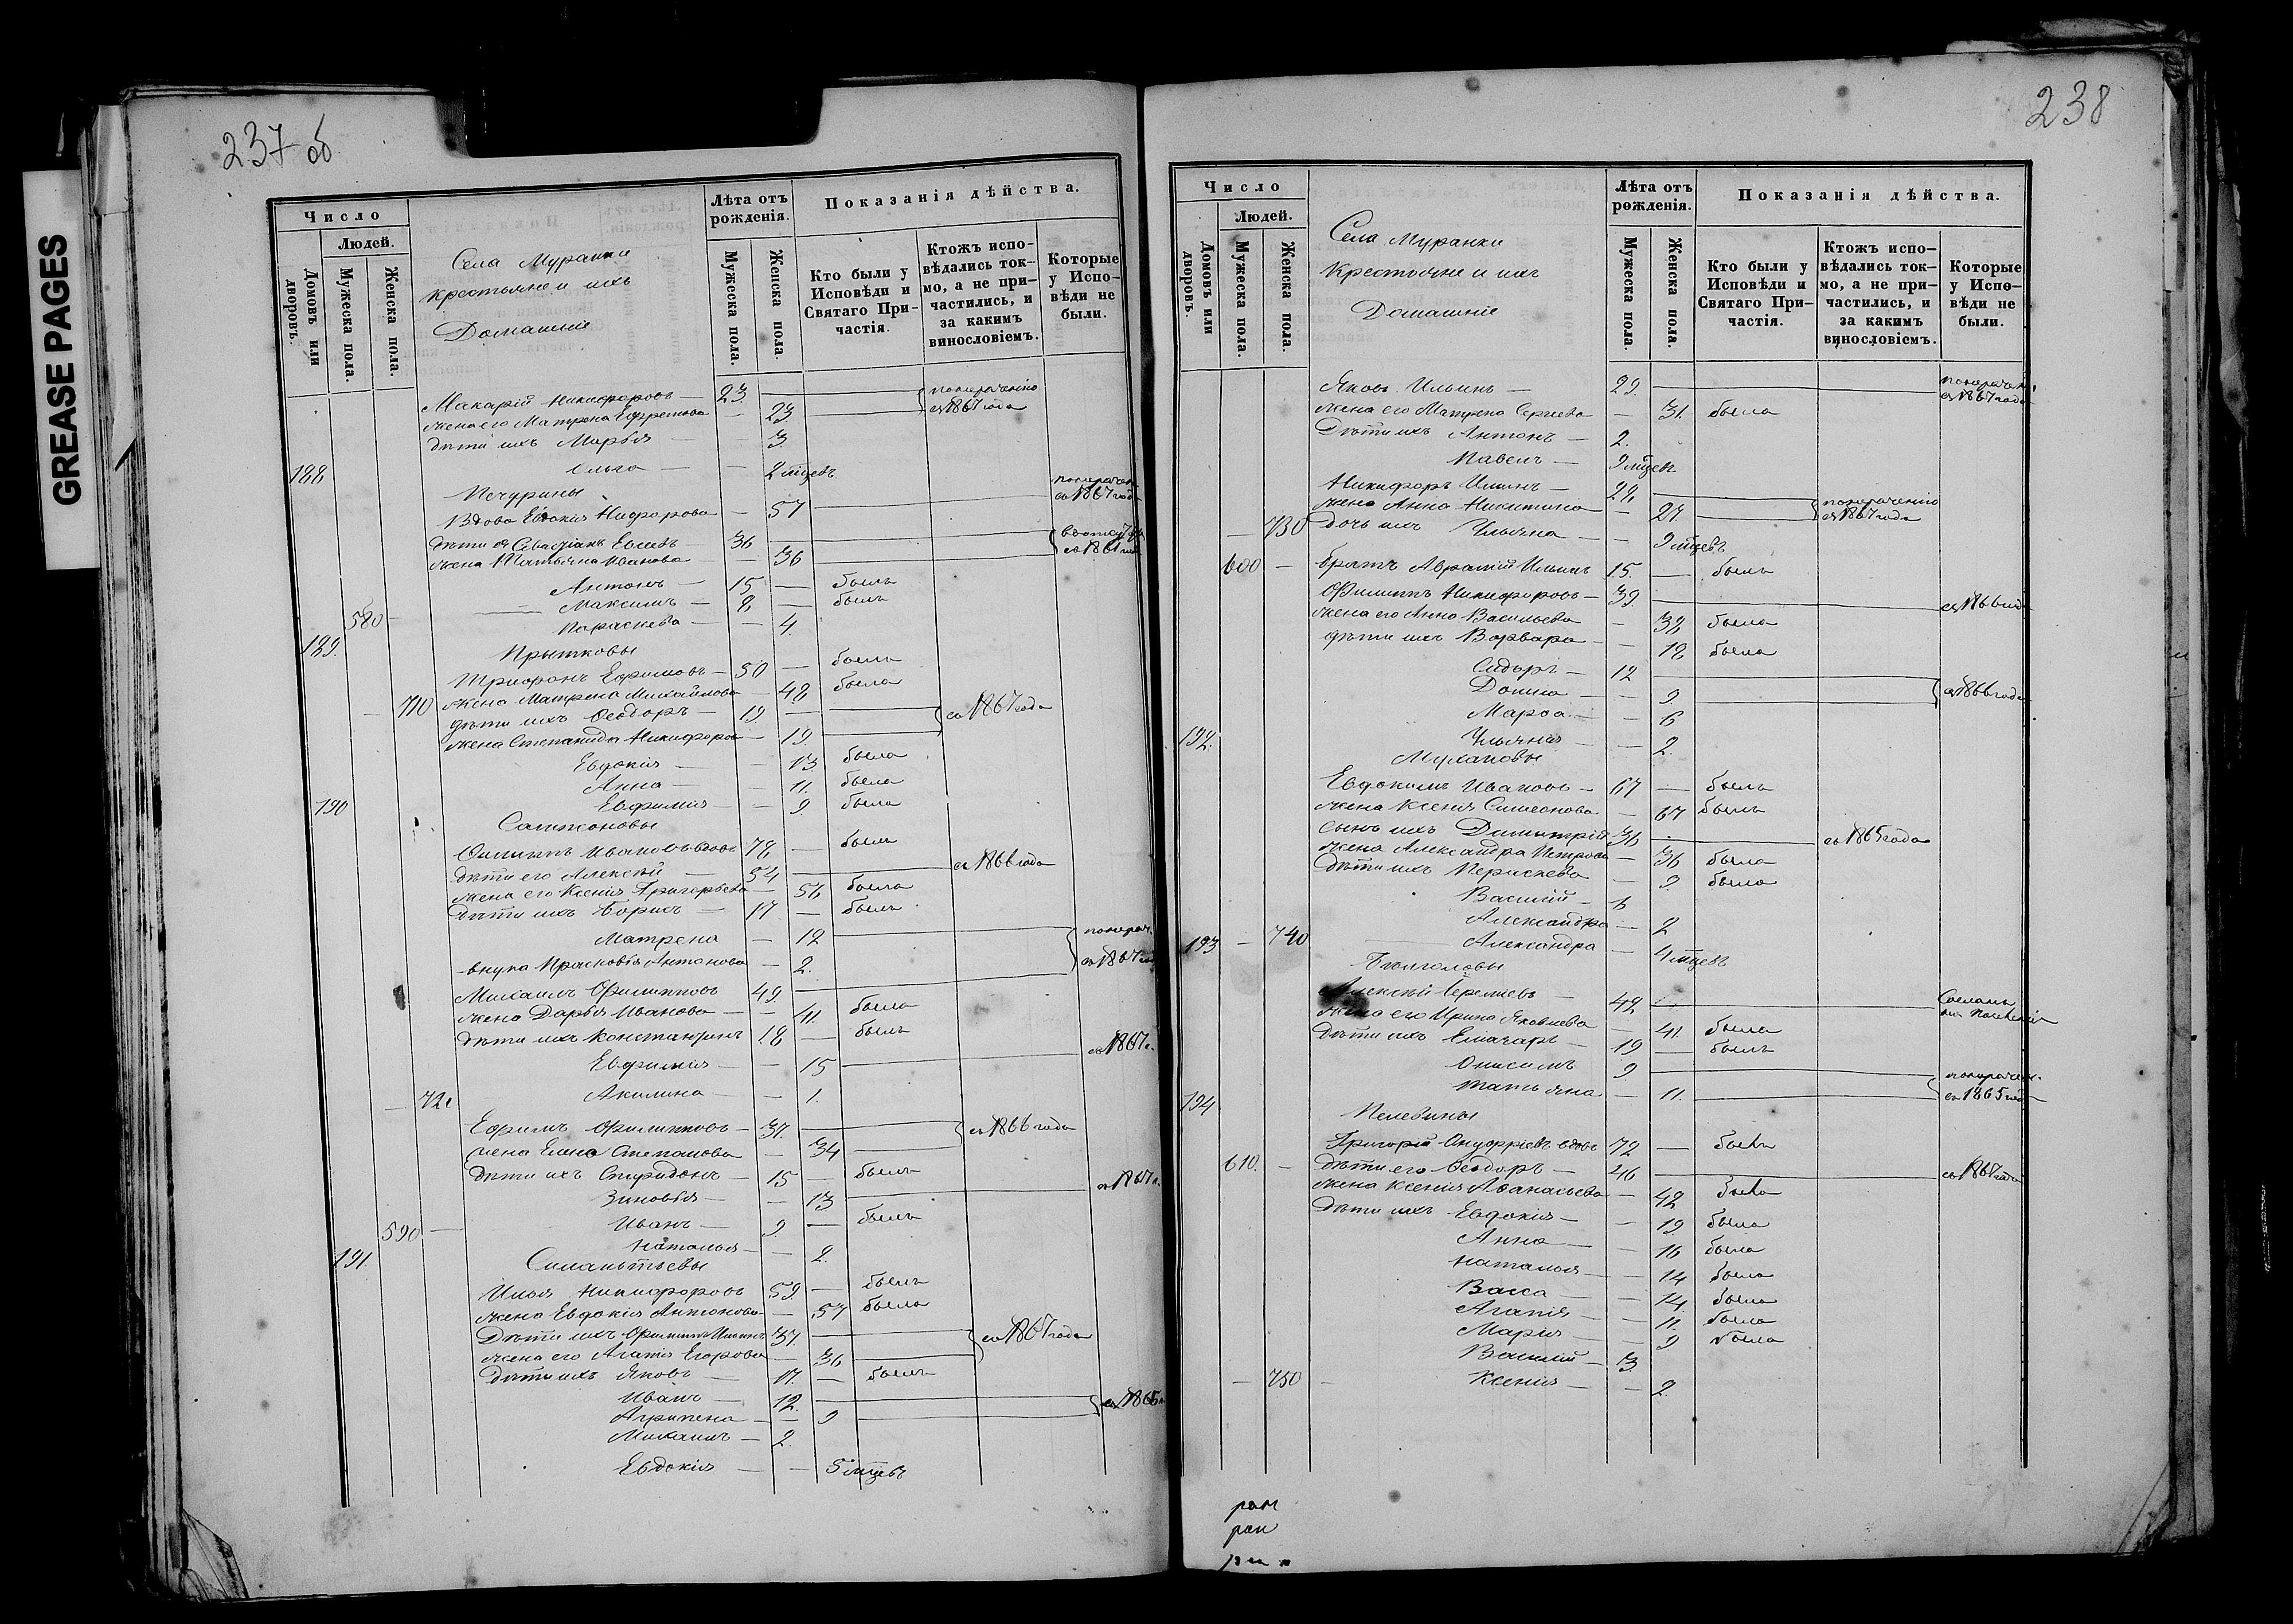 GREASE PAGES
237 об
Число
Людей.
Домовъ или дворовъ.
Мужеска пола.
Женска пола.
Села Муранки
крестьяне и ихъ
Домашніе
Лѣта отъ рожденія.
Мужеска пола.
Женска пола.
Показанія дѣйства.
Кто были у Исповѣди и Святаго Причастія.
Ктожъ исповѣдались токмо, а не причастились, и за какимъ винословіемъ.
Которые у Исповѣди не были.
Макарій Никифоровъ — 23
съ 1867 года
жена его Матрена Ефремова — 23
дѣти ихъ Марья — 3
Ольга — 2 мцевъ
188
Печурины
Вдова Евдокія — 57 съ 1867 год
дѣти ея Севастіанъ 36
жена Татьяна Иванова — 36
Антонъ — 15 — былъ
Максимъ — 8 — былъ
580 — Параскева — 4.
189. Прытковы
Трифонъ Ефимовъ — 50 — былъ
жена Матрена Михайлова — 48 была
710 дѣти ихъ Феодоръ — 19. съ 1867 года
жена Степанида Никифоров — 19.
Евдокія — 13 была
Анна — 11. была
Евфимія — 9. была
190
Сапожоновы
Филиппъ Ивановъ вдовъ 78 — былъ
дѣти его Алексѣй — 54 съ 1866 года
жена его Ксенія Григорьева — 56 была
дѣти ихъ Борисъ — 17 — былъ
Матрена — 12
съ 1867 год
внука Прасковья Антонова — 2.
Михаилъ Филипповъ 49.
жена Дарья Иванова — 41. была
дѣти ихъ Константинъ 18 — былъ
Евфимія — 15 съ 1867 г.
Акилина — 1.
Ефимъ Филипповъ — 37. съ 1866 года
жена Елена Степанова — 34
дѣти ихъ Спиридонъ — 15 — былъ
Зиновья — 13 съ 1867 г.
590 — Иванъ — 9. — былъ
Наталья — 2.
191. Силантьевы
Илья Никифоровъ 59 — былъ
жена Евдокія Антонова — 57 была
Дѣти ихъ Филиппъ Ильинъ 37. съ 1867 года
жена его Агапія Егорова — 36
Дѣти ихъ Яковъ — 17. — былъ
Иванъ — 12. съ 1865 г.
Агрипена — 9
Михаилъ — 2.
Евдокія — 5 мцевъ
238
Число
Людей.
Домовъ или дворовъ.
Мужеска пола.
Женска пола.
Села Муранки
Крестьяне и ихъ
Домашніе
Лѣта отъ рожденія.
Мужеска пола.
Женска пола.
Показанія дѣйства.
Кто были у Исповѣди и Святаго Причастія.
Ктожъ исповѣдались токмо, а не причастились, и за какимъ винословіемъ.
Которые у Исповѣди не были.
Яковъ Ильинъ — 29. съ 1867 года
жена его Матрена Сергеева — 31. была
Дѣти ихъ Антонъ — 2.
Павелъ — 9 мцевъ
Никифоръ Ильинъ — 22
съ 1867 года
жена Анна Никитина — 21.
730 дочь ихъ Ульяна — 9 мцевъ
600 — братъ Аврамій Ильинъ 15. — былъ
Филиппъ Никифоровъ — 39. съ 1866 год
жена его Анна Васильева — 38 была
дѣти ихъ Варвара — 18 была
Сидоръ — 12
съ 1866 года
Домна — 9.
Марфа — 6
192. Ульянія — 2.
Мухановы
Евдокимъ Ивановъ — 67 — былъ
жена Ксенія Симеонова — 67 былъ
сынъ ихъ Димитрій 36 съ 1865 года
жена Александра Петрова — 36 была
Дѣти ихъ Параскева — 9 была
Василій — 6
Александра — 2
193 — 740 Александра — 4 мцевъ
Алексѣй 42 — Сосланъ на поселеніе
жена его Ирина Яковлева — 41. была
Дѣти ихъ 19 — былъ
Онисимъ 9.
Татьяна — 11. съ 1865 год
194 Пелевины
Григорій Онуфріевъ вдовъ 72 — былъ
610. — Дѣти его Феодоръ — 46 съ 1867 года
жена Ксенія Афанасьева — 42 была
Дѣти ихъ Евдокія — 19 была
Анна — 16 была
Наталья — 14 была
Васса — 14. была
Агапія — 11. была
Марія — 9 была
Василій — 3
750 — Ксенія — 2.